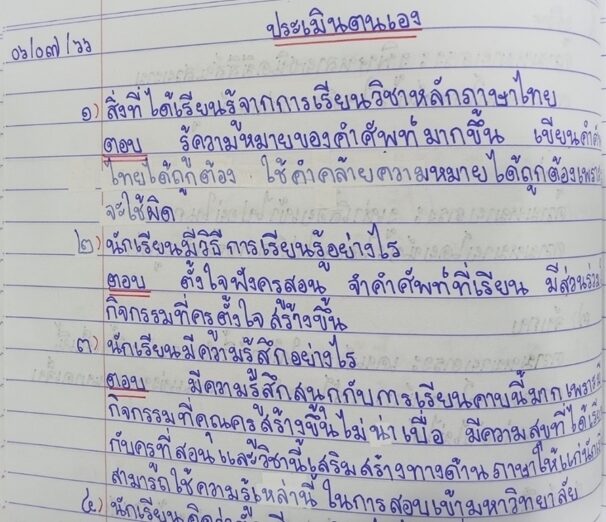 ประเมินตนเอง
๐๖/๐๗/๖๖
๑) สิ่งที่ได้เรียนรู้จากการเรียนวิชาหลักภาษาไทย
ตอบ รู้ความหมายของคำศัพท์มากขึ้น เขียนคำ
ไทยได้ถูกต้อง ใช้คำคล้ายความหมายได้ถูกต้องเพราะ
จะใช้ผิด
๒) นักเรียนมีวิธีการเรียนรู้อย่างไร
ตอบ ตั้งใจฟังครูสอน จำคำศัพท์ที่เรียน มีส่วนร่วม
กิจกรรมที่ครูตั้งใจสร้างขึ้น
๓) นักเรียนมีความรู้สึกอย่างไร
ตอบ มีความรู้สึกสนุกกับการเรียนคาบนี้มาก เพราะ
กิจกรรมที่คุณครูสร้างขึ้นไม่น่าเบื่อ มีความสุขที่ได้
กับครูที่สอน และวิชานี้เสริมสร้างทางด้านภาษาให้แก่
สามารถใช้ความรู้เหล่านี้ ในการสอบเข้ามหาวิทยาลัย
๔) นักเรียนคิดว่า